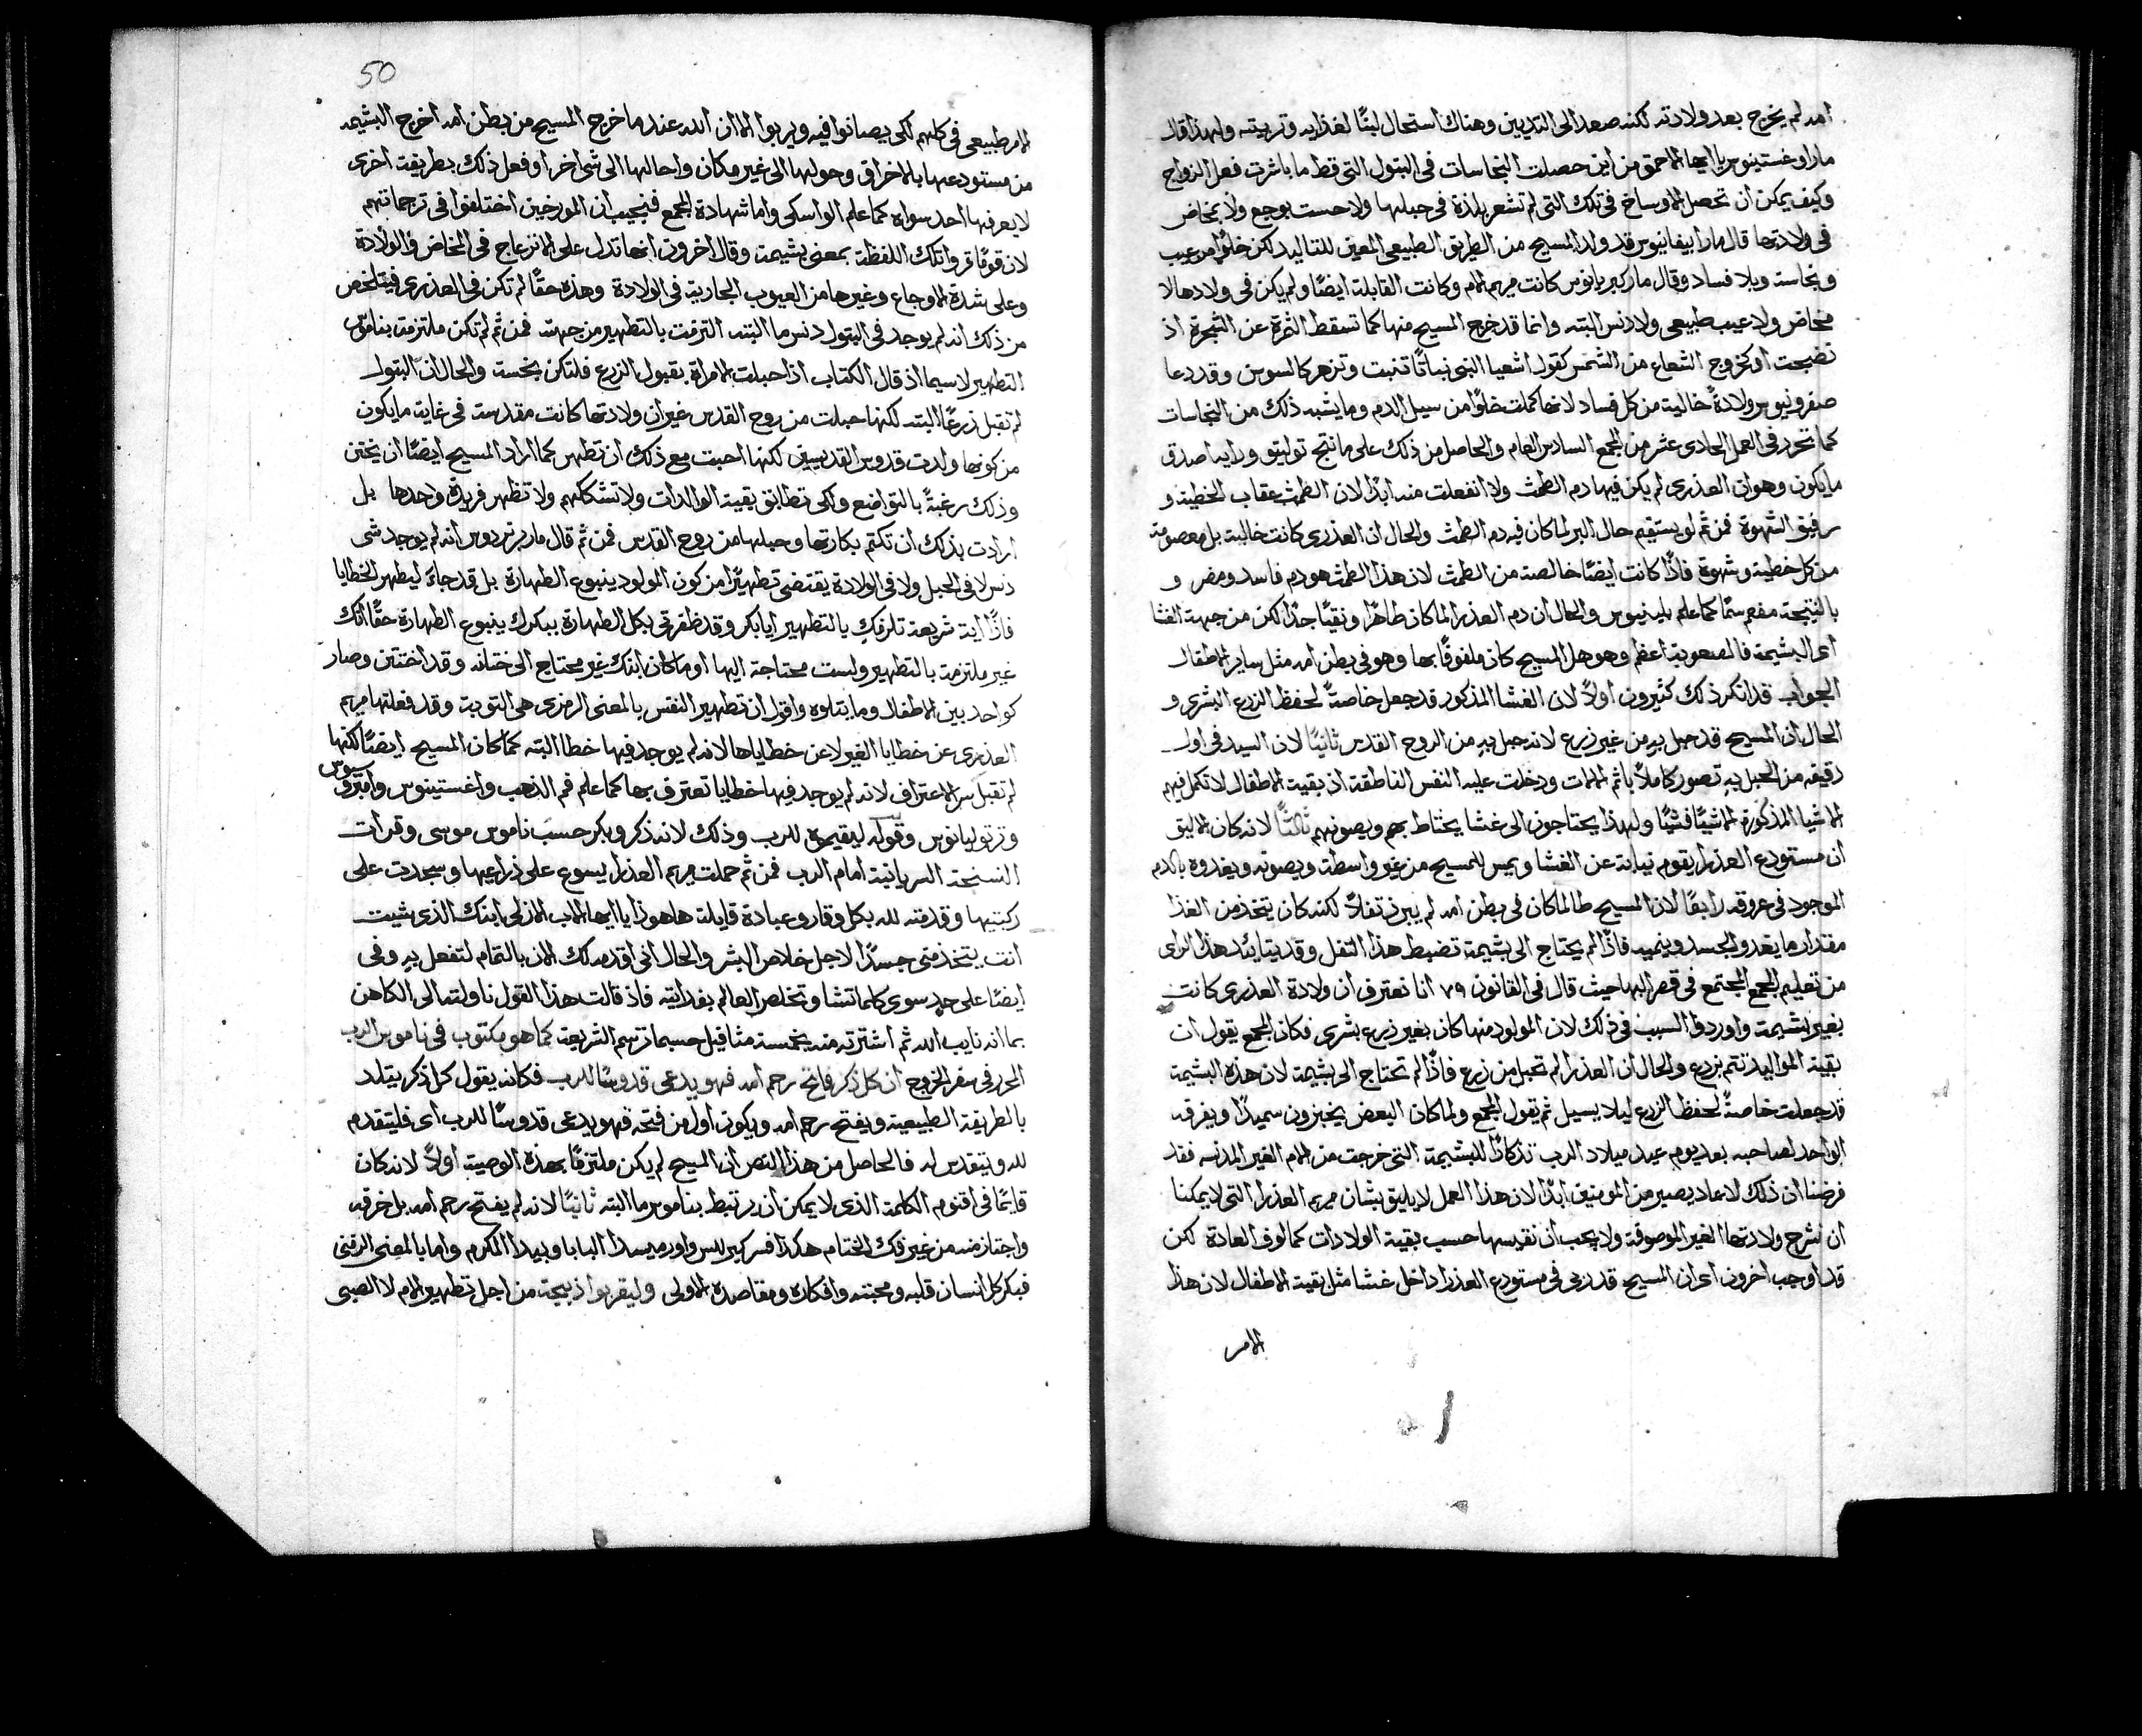 امه لم يخرج بعد ولادته لكنه صعد الى الثديين وهناك استحال لبنًا لغذايه وتربيته ولهذا قال
مار اوغستينوس يا ايها الاحمق من اين حصلت النجاسات في البتول التي قط ما باشرت فعل الزواج
وكيف يمكن ان تحصل الاوساخ في تلك التي لم تشعر بلذة في حبلها ولا حست بوجع ولا بمخاض
في ولادتها قال مار ابيفانيوس قد ولد المسيح من الطريق الطبيعي المعين للتاليد لكن خلوًا من عيب
ونجاسة وبلا فساد وقال مار كبريانوس كانت مريم الام وكانت القابلة ايضًا ولم يكن في ولادها لا
مخاض ولا عيب طبيعي ولا دنس البته وانما قد خرج المسيح منها كما تسقط الثمرة عن الشجرة اذ
نضجت او كخروج الشعاع من الشمس كقول اشعيا النبي نباتًا تنبت وتزهر كالسوسن وقد دعا
صفرونيوس ولادةً خالية من كل فساد لانها كملت خلوًا من سيل الدم وما يشبه ذلك من النجاسات
كما تحرر في العمل الحادي عشر من المجمع السادس العام والحاصل من ذلك على ما نتج توليتو ورايه اصدق
ما يكون وهو ان العذرى لم يكن فيها دم الطمث ولا انفعلت منه ابدًا لان الطمث عقاب الخطية و
رفيق الشهوة فمن ثم لو يستقيم حال البر لما كان فيه دم الطمث والحال ان العذرى كانت خالية بل معصومة
من كل خطية وشهوة فاذًا كانت ايضًا خالصة من الطمث لان هذا الطمث هو دم فاسد ومضر و
بالنتيجة مفعم سمًا كما علم بلينيوس والحال ان دم العذرا لما كان طاهرًا ونقيًا جدًا لكن من جهة الغشا
اى البشيمة فالصعوبة اعظم وهو هل المسيح كان ملفوفًا بها وهو في بطن امه مثل ساير الاطفال
الجواب قد انكر ذلك كثيرون اولاً لان الغشا المذكور قد جعل خاصةً لحفظ الزرع البشرى و
الحال ان المسيح قد حبل به من غير زرع لانه حبل به من الروح القدس ثانيًا لان السيد في اول
دقيقه من الحبل به تصور كاملاً باثم الالات ودخلت عليه النفس الناطقة اذ بقية الاطفال لا تكمل فيهم
الاشيا المذكورة الا شيًا فشيًا ولهذا يحتاجون الى غشا يحتاط بهم ويصونهم ثالثًا لانه كان الاليق
ان مستودع العذرا يقوم نيابة عن الغشا ويمس للمسيح من غير واسطة ويصونه ويغدوه بالدم
الموجود في عروقه رابعًا لان المسيح طالما كان في بطن امه لم يبرز تفلاً لكنه كان يتخذ من الغذا
مقدار ما يغدو الجسد وينميه فاذًا لم يحتاج الى بشيمة تضبط هذا التفل وقد يتايد هذا الراى
من تعليم المجمع المجتمع في قصر البها حيث قال في القانون ٧٩ انا نعترف ان ولادة العذرى كانت
بغير بشيمة واوردوا السبب في ذلك لان المولود منها كان بغير زرع بشرى فكان المجمع يقول ان
بقية المواليد تتم بزرع والحال ان العذرا لم تحبل من زرع فاذًا لم تحتاج الى بشيمة لان هذه البشيمة
قد جعلت خاصةً لحفظ الزرع ليلا يسيل ثم تقول المجمع ولما كان البعض يخبزون سميدًا ويفرقه
الواحد لصاحبه بعد يوم عيد ميلاد الرب تذكارًا للبشيمة التي خرجت من الام الغير المدنسه فقد
فرضنا ان ذلك لا عاد يصير من المومنين ابدًا لان هذا العمل لا يليق بشان مريم العذرا التي لا يمكنا
ان نشرح ولادتها الغير الموصوفة ولا يجب ان نقيسها حسب بقية الولادات كمالوف العادة لكن
قد اوجب اخرون اى ان المسيح قد ربى في مستودع العذرا داخل غشا مثل بقية الاطفال لان هذا
الامر
50
الامر طبيعي في كلهم لكى يصانوا فيه ويربوا الا ان الله عند ما خرج المسيح من بطن امه اخرج البشيمه
من مستودعها بالاخراق وحولها الى غير مكان واحالها الى شى اخر او فعل ذلك بطريقة اخرى
لا يعرفها احد سواه كما علم الواسكى واما شهادة المجمع فنجيب ان المورخين اختلفوا في ترجماتهم
لان قومًا قروا تلك اللفظة بمعنى بشيمة وقال اخرون انها تدل على الانزعاج في المخاض والولادة
وعلى شدة الاوجاع وغيرها من العيوب الجارية في الولادة وهذه حقًا لم تكن في العذرى فيتلخص
من ذلك انه لم يوجد في البتول دنس ما البته التزمت بالتطهير من جهته فمن ثم لم تكن ملتزمة بناموس
التطهير لا سيما اذ قال الكتاب اذا حبلت الامراة بقبول الزرع فلتكن نجسة والحال ان البتول
لم تقبل زرعًا البته لكنها حبلت من روح القدس غير ان ولادتها كانت مقدسة في غاية ما يكون
من كونها ولدت قدوس القديسين لكنها احبت مع ذلك ان تطهر كما اراد المسيح ايضًا ان يختتن
وذلك رغبةً بالتواضع ولكى تطابق بقية الوالدات ولا تشككهم ولا تظهر فريدة وحدها بل
ارادت بذلك ان تكتم بكارتها وحبلها من روح القدس فمن ثم قال مار برنردوس انه لم يوجد شى
دنس لا في الحبل ولا في الولادة يقتضى تطهيرًا من كون المولود ينبوع الطهارة بل قد جاءَ ليطهر الخطايا
فاذًا اية شريعة تلزمك بالتطهير ايا بكر وقد ظفرتى بكل الطهارة ببكرك ينبوع الطهارة حقًا انك
غير ملتزمة بالتطهير ولست محتاجة اليها او ما كان ابنك غير محتاج الى ختانه وقد اختتن وصار
كواحد بين الاطفال وما يتلوه واقول ان تطهير النفس بالمعنى الرمزى هى التوبة وقد فعلتها مريم
العذرى عن خطايا الغير لا عن خطاياها لانه لم يوجد فيها خطا البته كما كان المسيح ايضًا لكنها
لم تقبل سر الاعتراف لانه لم يوجد فيها خطايا تعترف بها كما علم فم الذهب واغستينوس وامبروسيوس
وترتوليانوس وقوله ليقيموه للرب وذلك لانه ذكر وبكر حسب ناموس موسى وقرات
النسخة السريانية امام الرب فمن ثم حملت مريم العذرا يسوع على ذراعيها وسجدت على
ركبتيها وقدمته لله بكل وقار وعبادة قايلة ها هوذا يا ايها الاب الازلى ابنك الذى شيت
انت يتخذ منى جسدًا لاجل خلاص البشر والحال انى اقدمه لك الان بالتمام لتفعل به وفى
ايضًا على حدٍ سوى كلما تشا وتخلص العالم بفدايته فاذ قالت هذا القول ناولته الى الكاهن
بما انه نايب الله ثم اشترته منه بخمسة مثاقيل حسبما ترسم الشريعة كما هو مكتوب في ناموس الرب
المحرر في سفر الخروج ان كل ذكر فاتح رحم امه فهو يدعى قدوسًا للرب فكانه يقول كل ذكر يتلد
بالطريقة الطبيعية ويفتح رحم امه ويكون اول من فتحه فهو يدعى قدوسًا للرب اى فليتقدم
لله ويتقدس له فالحاصل من هذا النص ان المسيح لم يكن ملتزمًا بهذه الوصية اولاً لانه كان
قايمًا في اقنوم الكلمة الذى لا يمكن ان يرتبط بناموس ما البته ثانيًا لانه لم يفتح رحم امه بل خرقه
واجتاز منه من غير فك الختام هكذا فسر كيرللس واورميسدا البابا وبيدا المكرم واما بالمعنى الرمزى
فبكر كل انسان قلبه ومحبته وافكاره ومقاصده الاولى وليقربوا ذبيحة من اجل تطهير الام لا الصبى